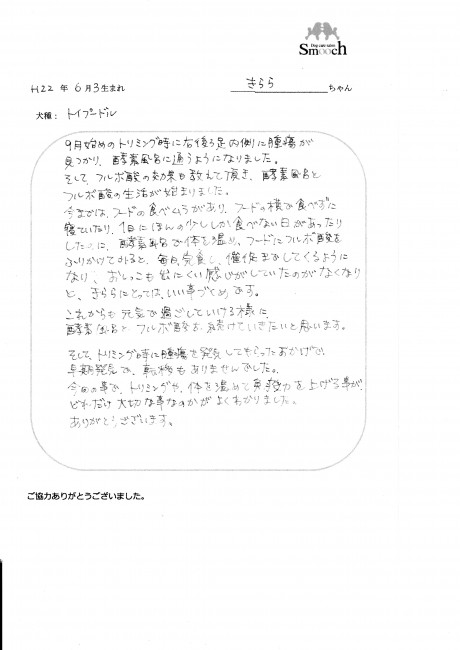 Dog care salon
Smooch
H22 年 6 月 3 生まれ
きらら ちゃん
犬種： トイプードル
9月始めのトリミング時に右後ろ足内側に腫瘍が
見つかり、酵素風呂に通うようになりました。
そして、フルボ酸の効果も教えて頂き、酵素風呂と
フルボ酸の生活が始まりました。
今までは、フードの食べムラがあり、フードの横で食べずに
寝ていたり、1日にほんの少ししか食べない日があったり
したのに、酵素風呂で体を温め、フードにフルボ酸を
ふりかけてみると、毎日、完食し、催促までしてくるように
なり、おしっこも出にくい感じがしていたのがなくなり
と、きららにとっては、いい事づくめです。
これからも元気で過ごしていける様に、
酵素風呂とフルボ酸を続けていきたいと思います。
そして、トリミング時に腫瘍を発見してもらったおかげで、
早期発見で、転移もありませんでした。
今回の事で、トリミングや、体を温めて免疫力を上げる事が、
どれだけ大切な事なのかがよくわかりました。
ありがとうございます。
ご協力ありがとうございました。